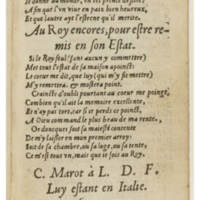 A fin qu'on vive en paix bien heureux,
Et que lautre ayt l'esterne qu'il merite.
Au Roy encores, pour estre re-
mis en son Estat.
Si le Roy seul (sans aucun y commettre)
Met tout l'estat de sa maison à poinct:
Le cœur me dit, que luy (qui m'y fit mettre)
M'y remettra, & m'ostera point.
Craincte d'oubli pourtant au cœur me poingt,
Combien qu'il ait la memoire excellente,
Et n'ay pas tort, car si ie perds ce poinct,
A Dieu command le plus beau de ma rente,
Or doncques soit sa maiesté contente
De m'y laisser en mon premier arroy:
Soit de sa chambre, ou sa loge, ou sa tente,
Ce m'est tout vn, mais que ie sois au Roy.
C. Marot à L. D. F.
Luy estant en Italie.